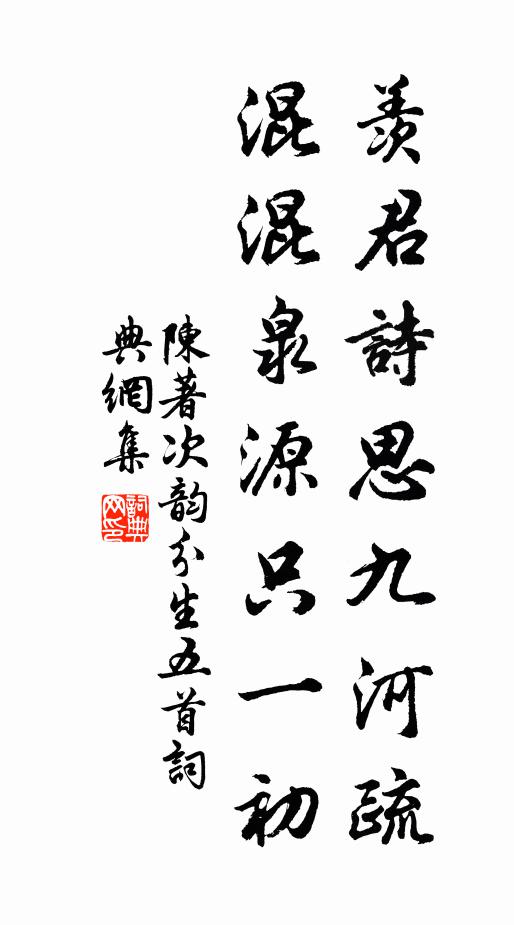 羨君詩思九河疏
混混泉源只一初
陳著次韵分生五首詞
典網集
詞典网印